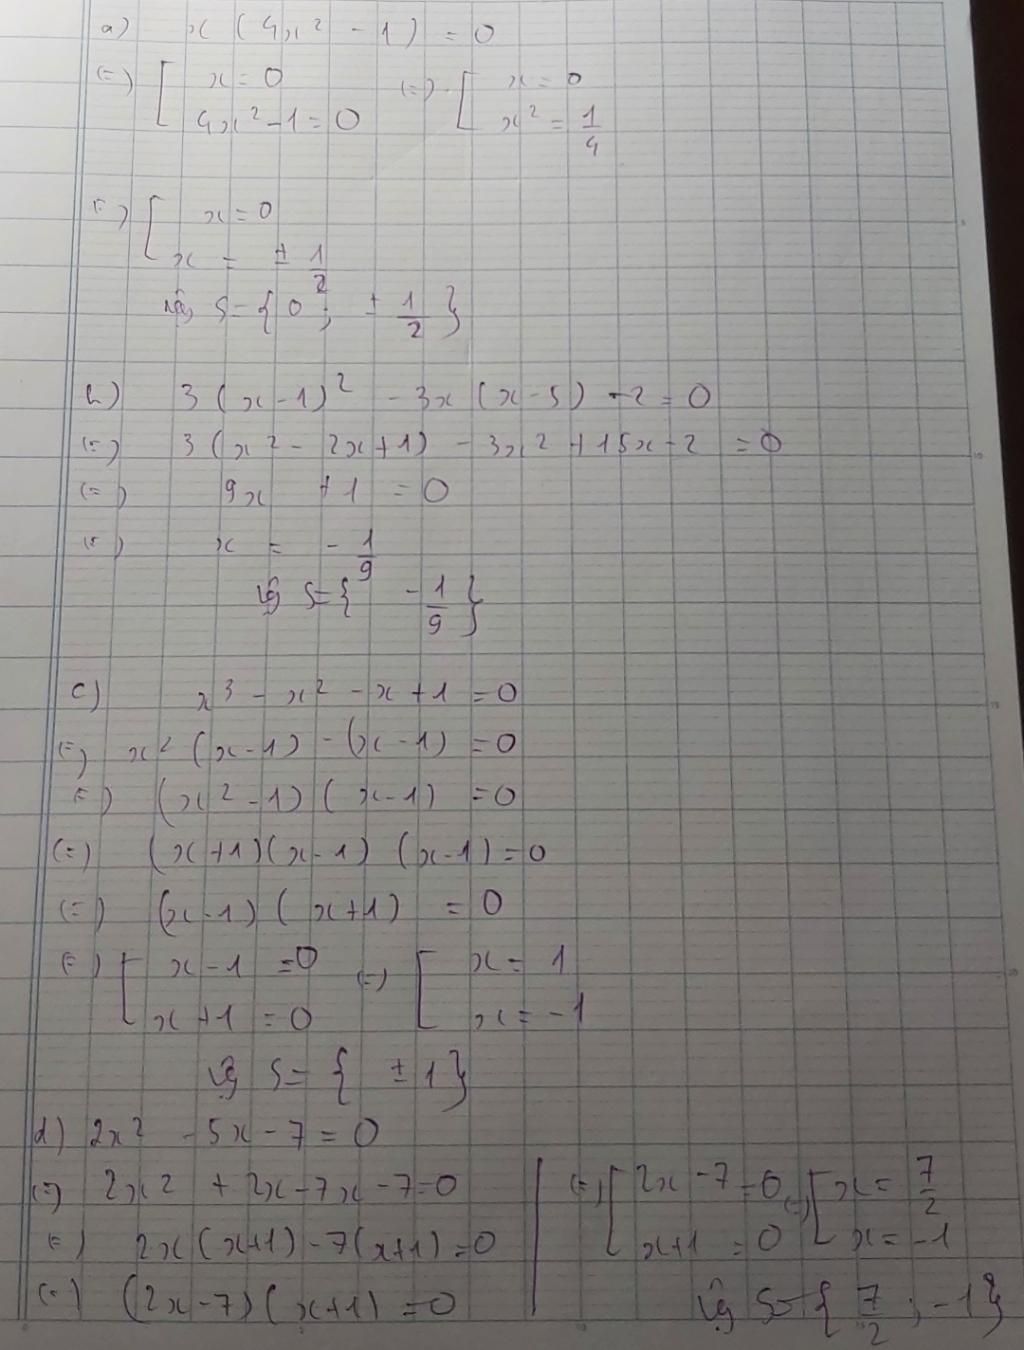 a) x (4x² - 1) = 0
(=) [ x = 0 (=) [ x = 0
4x² - 1 = 0 x² = 1/4
(=) [ x = 0
x = ± 1/2
Vậy S = { 0 ; ± 1/2 }
b) 3 (x - 1)² - 3x (x - 5) - 2 = 0
(=) 3 (x² - 2x + 1) - 3x² + 15x - 2 = 0
(=) 9x + 1 = 0
(=) x = - 1/9
Vậy S = { - 1/9 }
c) x³ - x² - x + 1 = 0
(=) x² (x - 1) - (x - 1) = 0
(=) (x² - 1) (x - 1) = 0
(=) (x + 1) (x - 1) (x - 1) = 0
(=) (x - 1) (x + 1) = 0
(=) [ x - 1 = 0 (=) [ x = 1
x + 1 = 0 x = -1
Vậy S = { ± 1 }
d) 2x² - 5x - 7 = 0
(=) 2x² + 2x - 7x - 7 = 0
(=) 2x (x + 1) - 7 (x + 1) = 0
(=) (2x - 7) (x + 1) = 0
(=) [ 2x - 7 = 0 (=) [ x = 7/2
x + 1 = 0 x = -1
Vậy S = { 7/2 ; -1 }